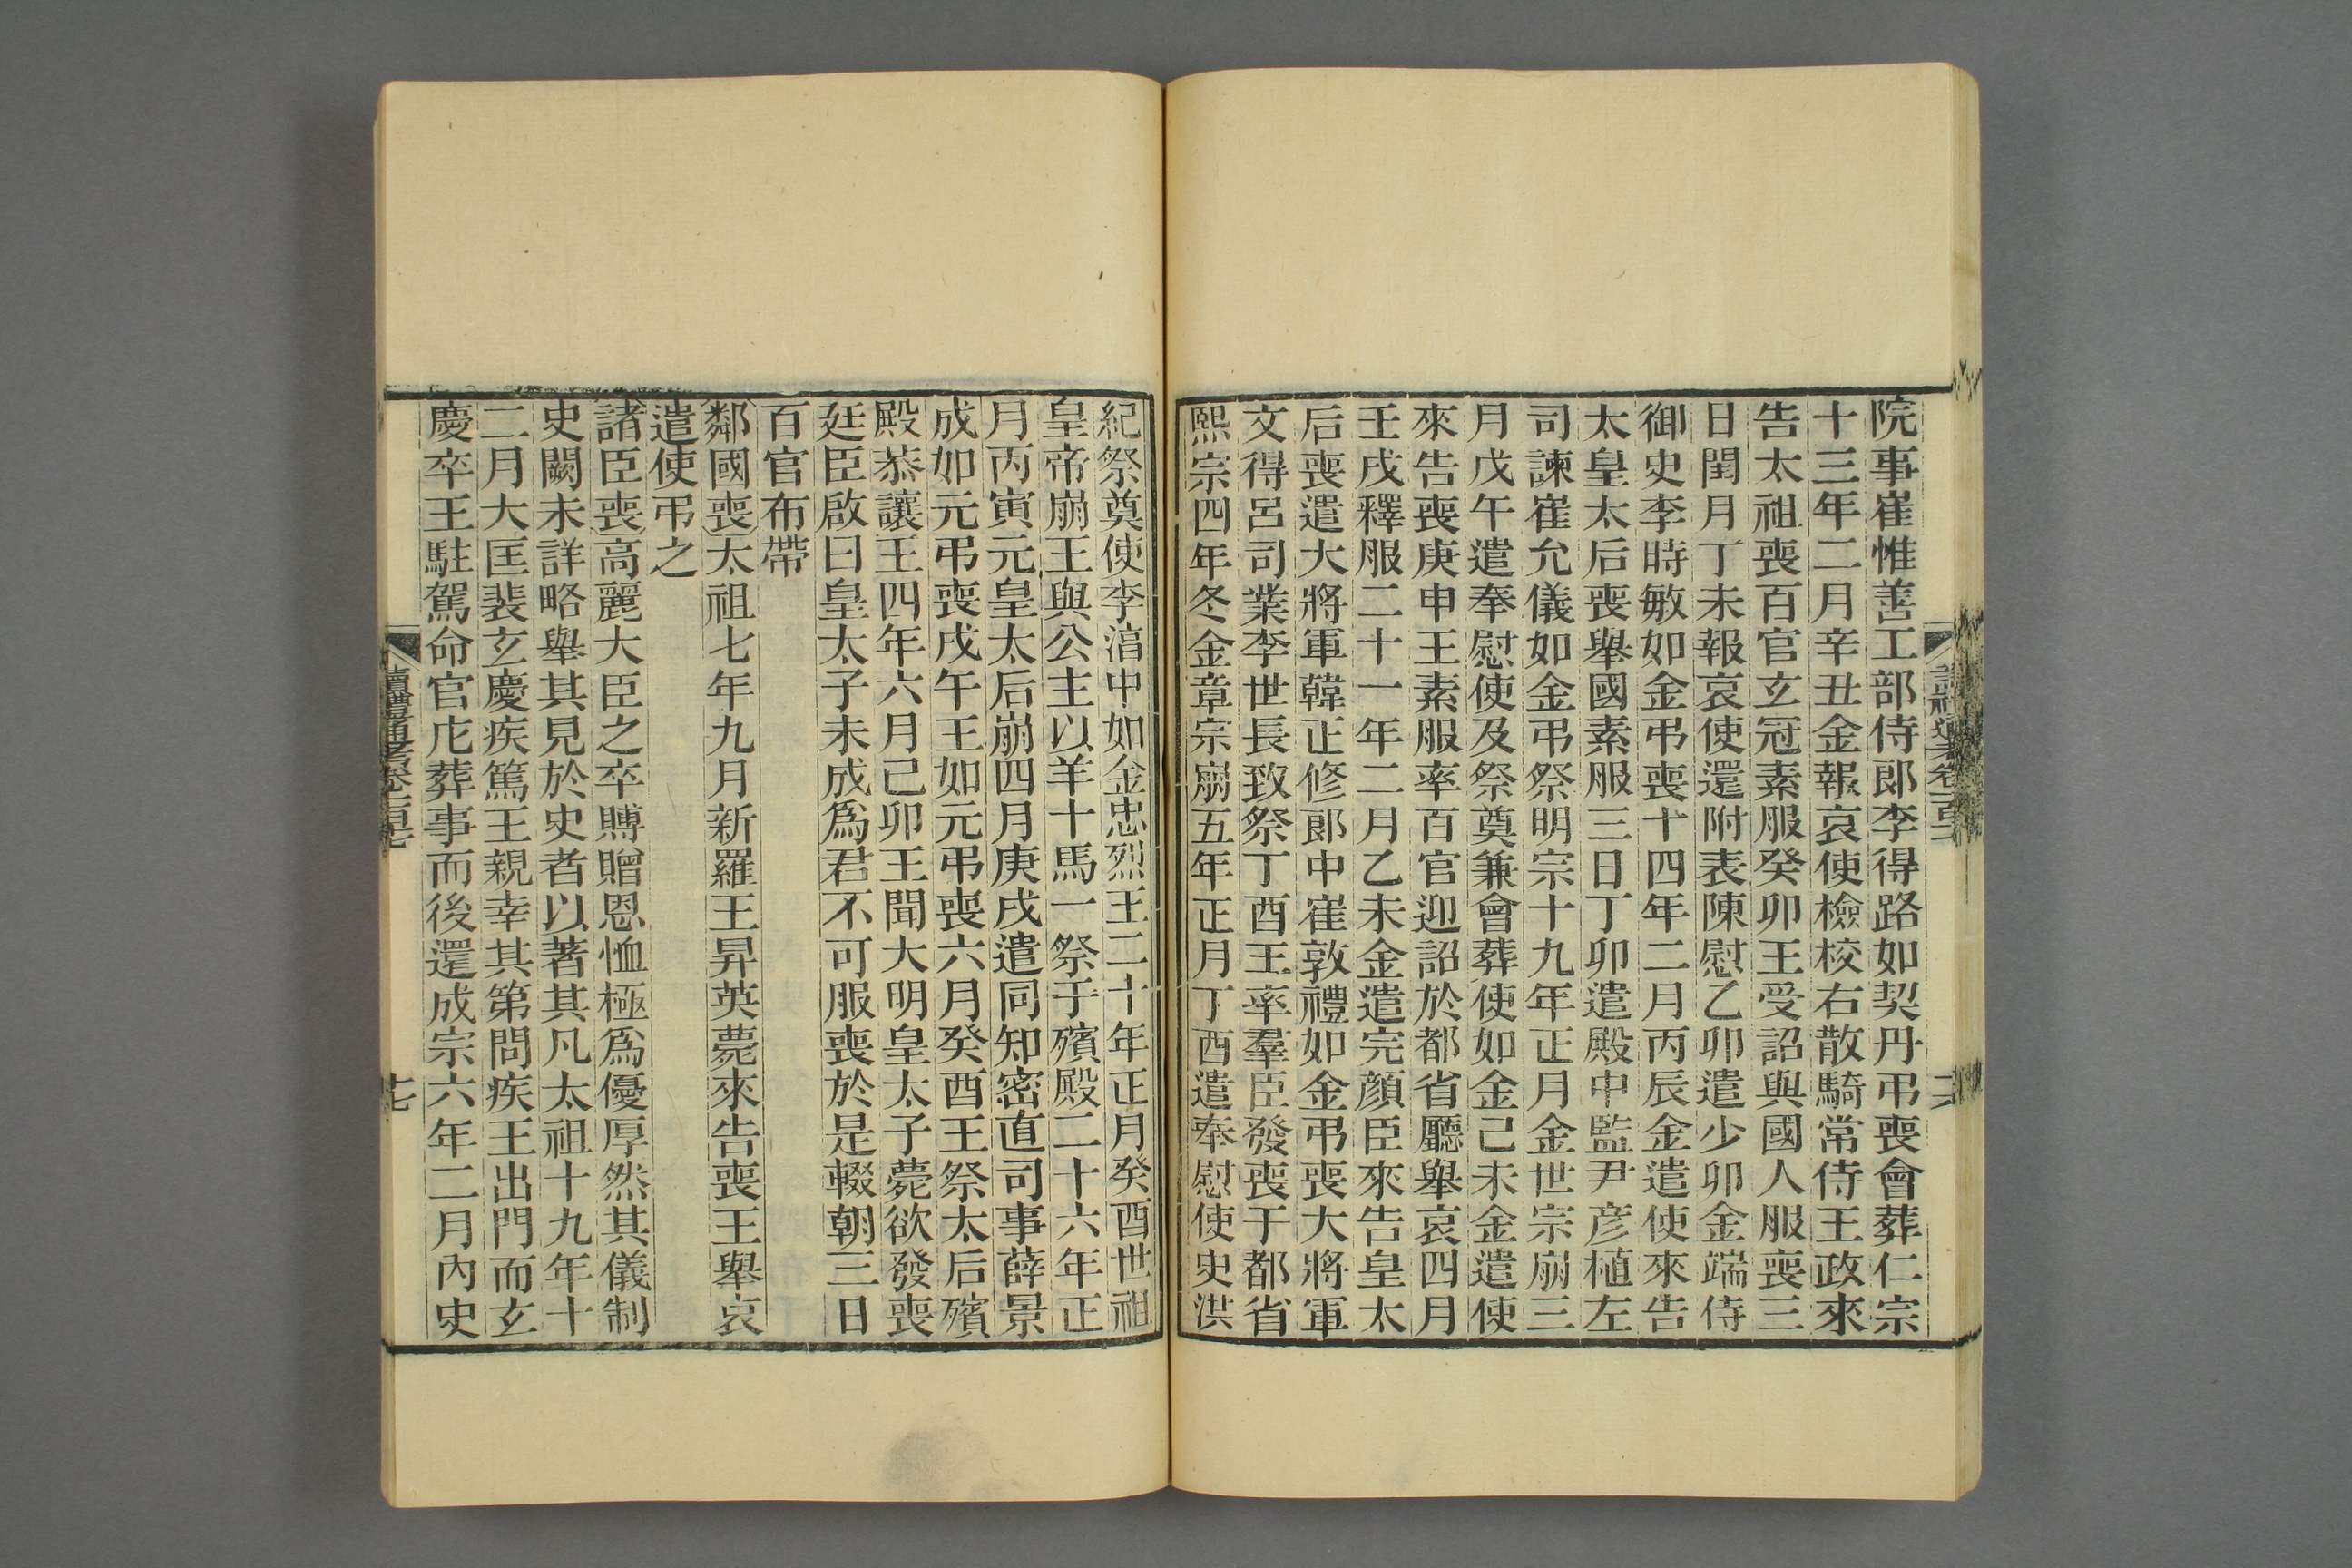 院事崔惟善工部侍郎李得路如契丹弔喪會葬仁宗
十三年二月辛丑金報哀使檢校右散騎常侍王政來
告太祖喪百官玄冠素服癸卯王受詔與國人服喪三
日閏月丁未報哀使還附表陳慰乙卯遣少卯金端侍
御史李時敏如金弔喪十四年二月丙辰金遣使來告
太皇太后喪舉國素服三日丁卯遣殿中監尹彥植左
司諫崔允儀如金弔祭明宗十九年正月金世宗崩三
月戊午遣奉慰使及祭奠兼會葬使如金己未金遣使
來告喪庚申王素服率百官迎詔於都省廳舉哀四月
壬戌釋服二十一年二月乙未金遣完顏臣來告皇太
后喪遣大將軍韓正修郎中崔敦禮如金弔喪大將軍
文得呂司業李世長致祭丁酉王率羣臣發喪于都省
熙宗四年冬金章宗崩五年正月丁酉遣奉慰使史洪
紀祭奠使李淯中如金忠烈王二十年正月癸酉世祖
皇帝崩王與公主以羊十馬一祭于殯殿二十六年正
月丙寅元皇太后崩四月庚戌遣同知密直司事薛景
成如元弔喪戊午王如元弔喪六月癸酉王祭太后殯
殿恭讓王四年六月己卯王聞大明皇太子薨欲發喪
廷臣啟曰皇太子未成爲君不可服喪於是輟朝三日
百官布帶
鄰國喪太祖七年九月新羅王昇英薨來告喪王舉哀
遣使弔之
諸臣喪高麗大臣之卒賻贈恩恤極爲優厚然其儀制
史闕未詳略舉其見於史者以著其凡太祖十九年十
二月大匡裴玄慶疾篤王親幸其第問疾王出門而玄
慶卒王駐駕命官庀葬事而後還成宗六年二月內史
讀禮通考卷一百七
十七